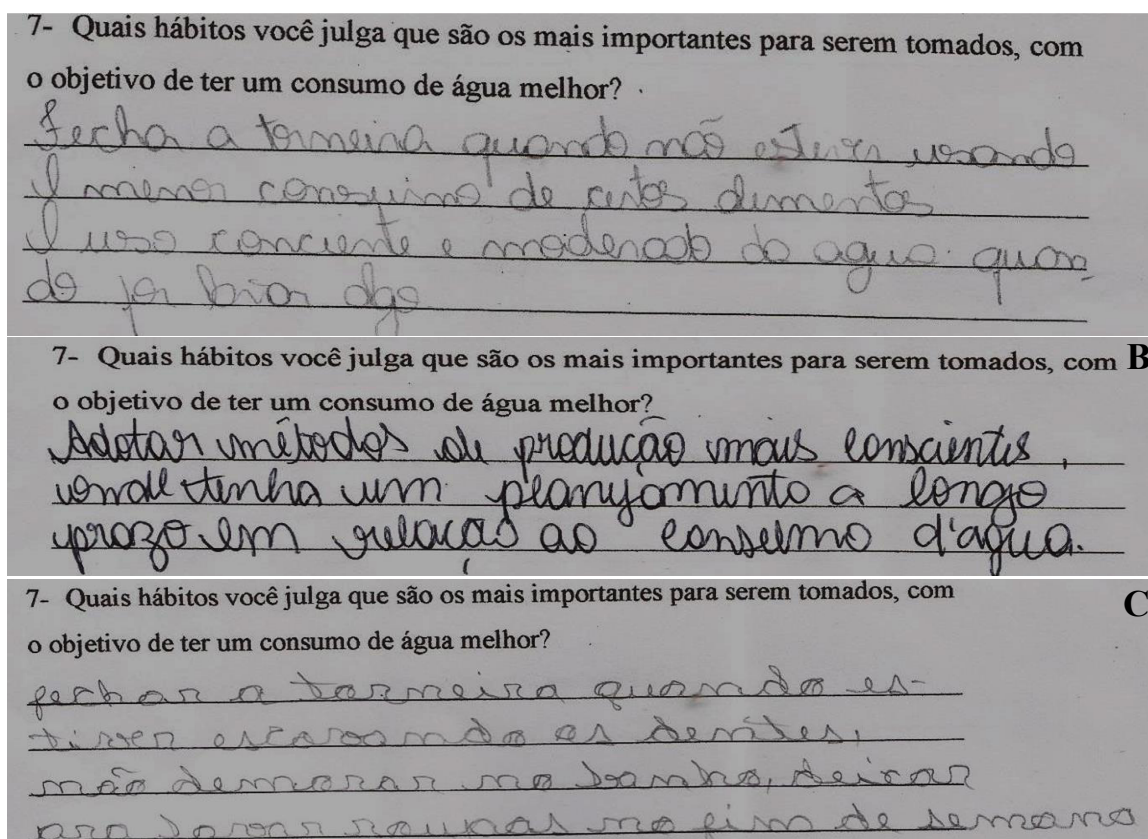 7- Quais hábitos você julga que são os mais importantes para serem tomados, com
o objetivo de ter um consumo de água melhor?
Fecha a torneira quando não estiver usando
O menor consumo de certos alimentos
O uso conciente e moderado da agua. quan
do for lavar algo
7- Quais hábitos você julga que são os mais importantes para serem tomados, com B
o objetivo de ter um consumo de água melhor?
Adotar métodos de produção mais conscientes,
onde tenha um planejamento a longo
prazo em relação ao consumo d'agua.
7- Quais hábitos você julga que são os mais importantes para serem tomados, com C
o objetivo de ter um consumo de água melhor?
fechar a torneira quando es-
tiver escovando os dentes,
não demorar no banho, deixar
pra lavar roupas no fim de semana